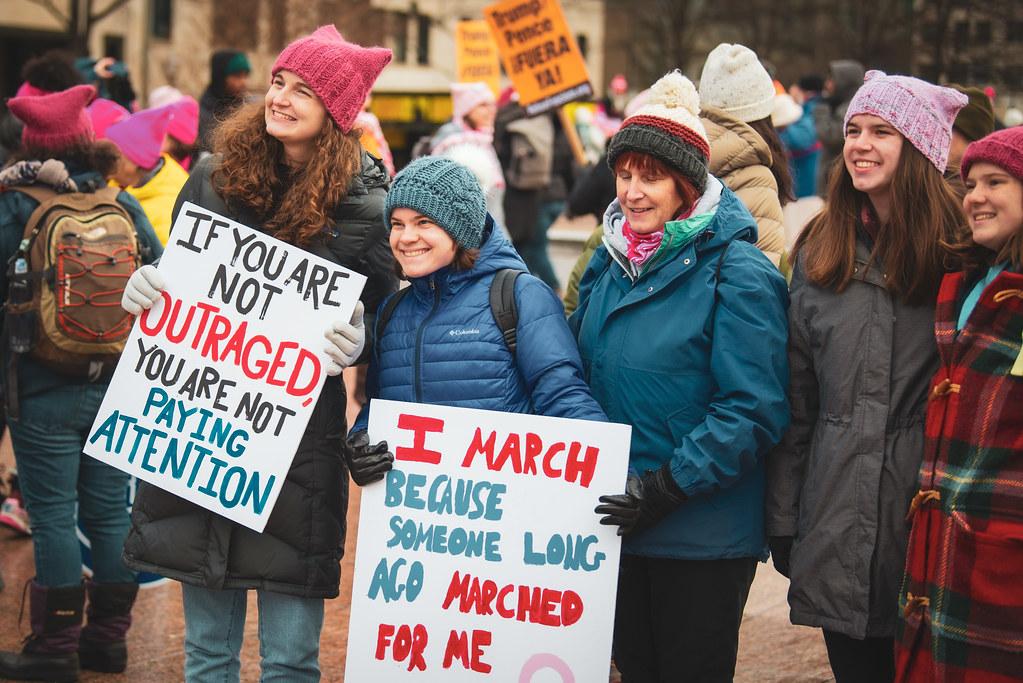 Trump
Pence
¡FUERA
YA!
IF YOU ARE
NOT
OUTRAGED,
YOU ARE NOT
PAYING
ATTENTION
Columbia
I MARCH
BECAUSE
SOMEONE LONG
AGO MARCHED
FOR ME